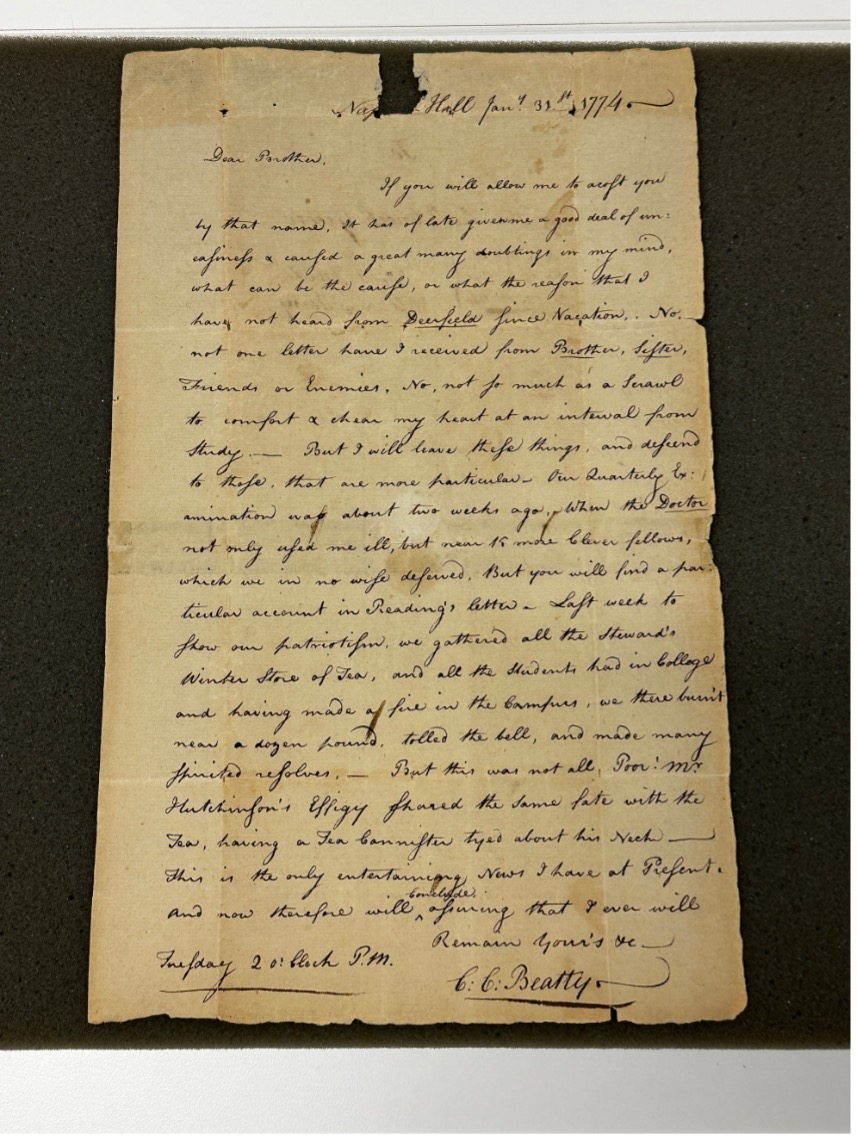 Nas Hall Jany. 31st. 1774.
Dear Brother,
If you will allow me to acost you
by that name, It has of late given me a good deal of un:
easiness & caused a great many doubtings in my mind,
what can be the cause, or what the reason that I
have not heard from Deerfield since Vacation,. No.
not one letter have I received from Brother, Sister,
Friends or Enemies, No, not so much as a Scrawl
to comfort & chear my heart at an interval from
Study. — But I will leave these things, and descend
to those, that are more particular – Our Quarterly Ex:
amination was about two weeks ago, When the Doctor
not only used me ill, but near 15 more Clever fellows,
which we in no wise deserved, But you will find a par:
ticular account in Reading's letter – Last week to
show our patriotism, we gathered all the Steward's
Winter Store of Tea, and all the Students had in College
and having made a fire in the Campus, we there burn't
near a dozen pound, tolled the bell, and made many
spirited resolves, — But this was not all, Poor! Mr
Hutchinson's Effigy shared the same fate with the
Tea, having a Tea Cannister tyed about his Neck —
This is the only entertaining News I have at Present.
And now therefore will conclude. assuring that I ever will
Remain Your's &c —
Tuesday 2 o: Clock P.M.
C: C: Beatty.